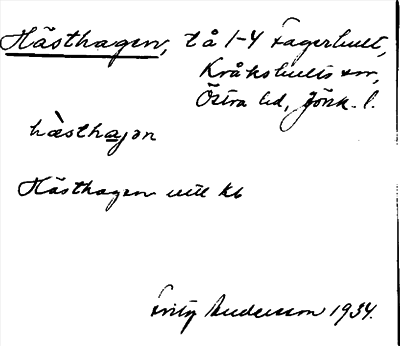 Hästhagen, tå 1-4 Fagerhult,
Kråkshults sn,
Östra hd, Jönk. l.
hàsthaȷən
Hästhagen utt kb
Fritz Andersson 1934.